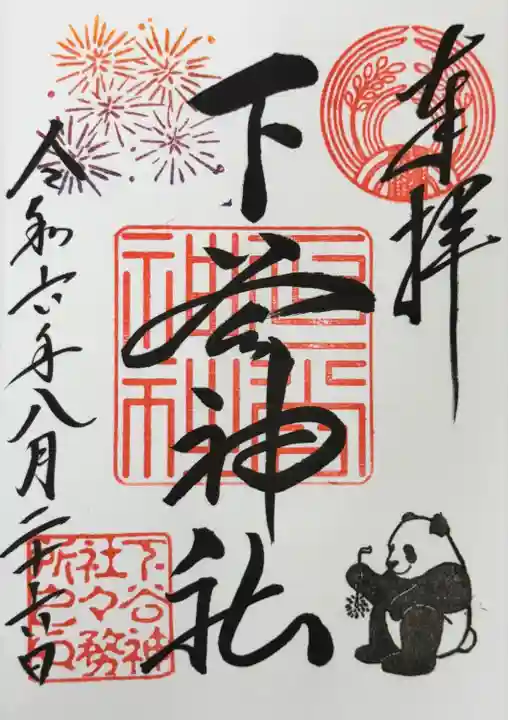 奉拝
下谷神社
令和六年八月二十六日
下谷神
社々務
所之印